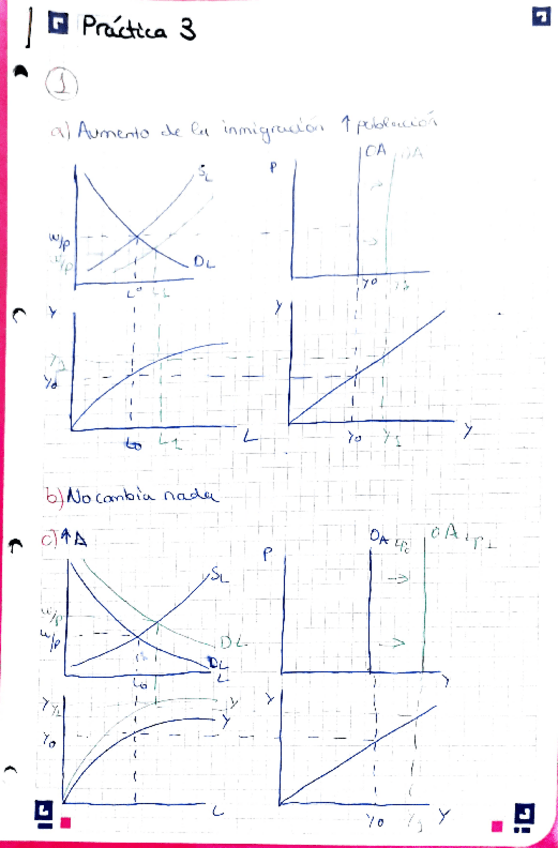 Práctica 3
1
a) Aumento de la inmigración ↑ población
SL
W/P
W/P
DL
L0 L1
P
OA OA
Y0 Y1
Y
Y1
Y0
L0 L1 L
Y
Y0 Y1 Y
b) No cambia nada
c) ↑A
SL
W/P
W/P
DL
DL
L0 L
P
OALP0 OALP1
Y
Y Y1
Y0
Y
Y
L
Y
Y0 Y1 Y